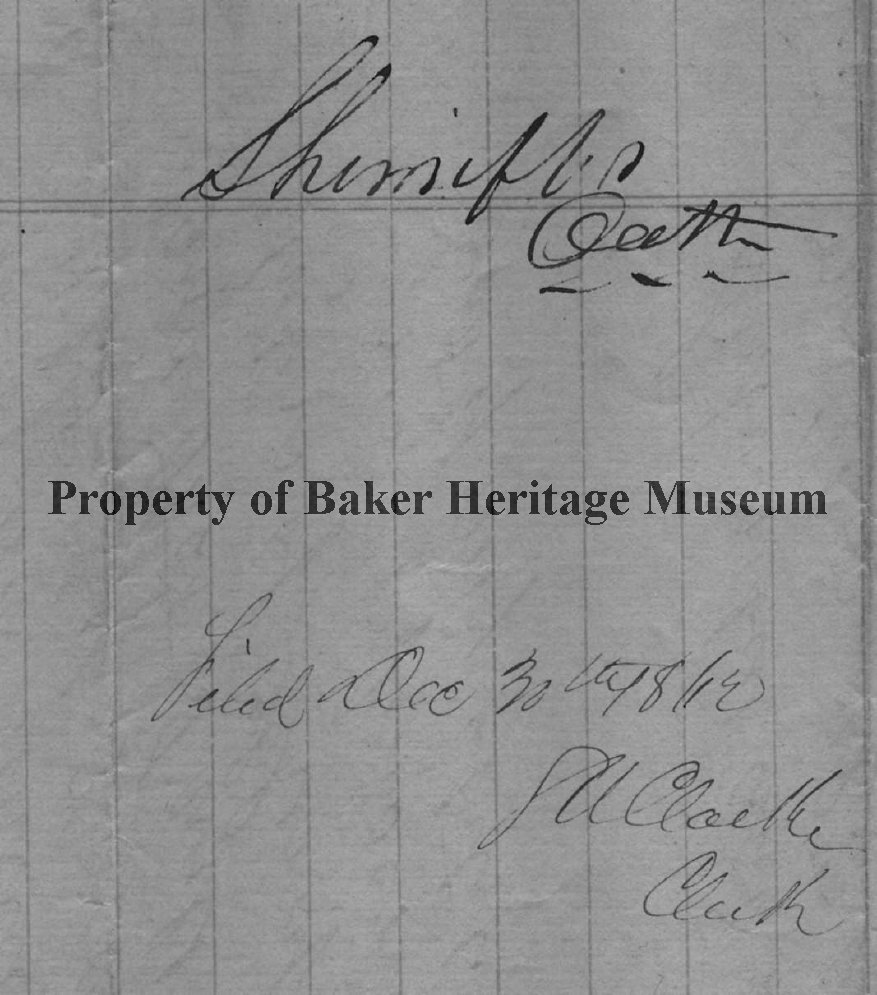 Sheriff's
Oath
Property of Baker Heritage Museum
Filed Dec 30th 1862
Clarke
Clerk